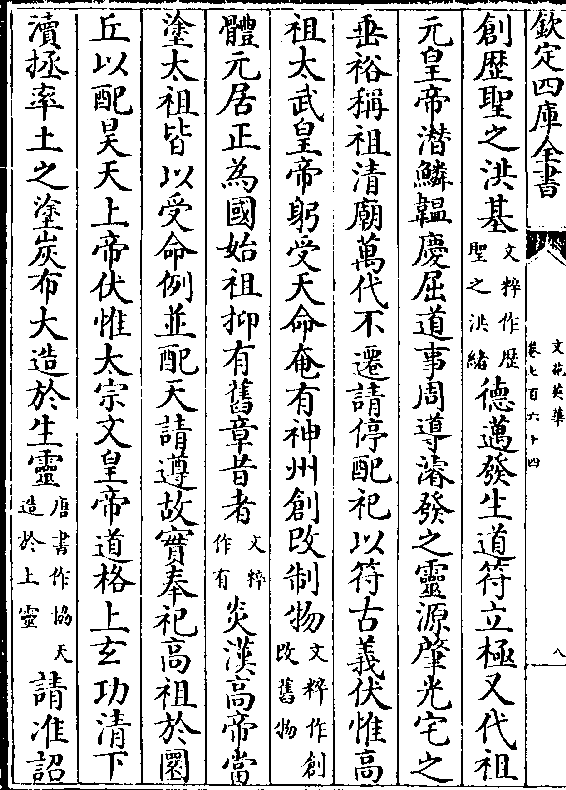 欽定四庫全書
文苑英華
卷七百六十四
八
創歴聖之洪基
文粹作歴
聖之洪緒
德邁發生道符立極又代祖
元皇帝潜鱗韞慶屈道事周導濬發之靈源肇光宅之
垂裕稱祖清廟萬代不遷請停配祀以符古義伏惟高
祖太武皇帝躬受天命奄有神州創改制物
文粹作創
改舊物
體元居正為國始祖抑有舊章昔者
文粹
作有
炎漢高帝當
塗太祖皆以受命例並配天請遵故實奉祀高祖於圜
丘以配昊天上帝伏惟太宗文皇帝道格上玄功清下
瀆拯率土之塗炭布大造於生靈
唐書作協天
造於上靈
請准詔